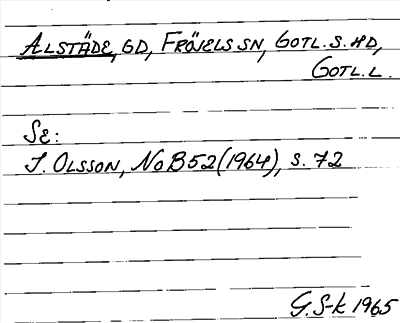 ALSTÄDE, GD, FRÖJELS SN, GOTL. S. HD,
GOTL. L.
SE:
I. OLSSON, NoB 52 (1964), S. 72
G. S-k 1965